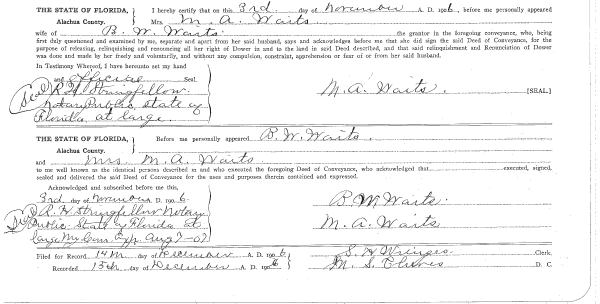 THE STATE OF FLORIDA, I hereby certify that on this 3rd day of November A. D. 1906, before me personally appeared
Alachua County. Mrs. M. A. Waits
wife of B. W. Waits the grantor in the foregoing conveyance, who, being
first duly questioned and examined by me, separate and apart from her said husband, says and acknowledges before me that she did sign the said Deed of Conveyance, for the
purpose of releasing, relinquishing and renouncing all her right of Dower in and to the land in said Deed described, and that said relinquishment and Renunciation of Dower
was done and made by her freely and voluntarily, and without any compulsion, constraint, apprehension or fear of or from her said husband.
In Testimony Whereof, I have hereunto set my hand
and official Seal.
(Seal) R. H. Stringfellow. M. A. Waits. [SEAL.]
Notary Public, State of
Florida, at large.
THE STATE OF FLORIDA, Before me personally appeared B. W. Waits.
Alachua County.
and Mrs. M. A. Waits
to me well known as the identical persons described in and who executed the foregoing Deed of Conveyance, who acknowledged that executed, signed,
sealed and delivered the said Deed of Conveyance for the uses and purposes therein contained and expressed.
Acknowledged and subscribed before me this,
3rd day of November A. D. 1906. B. W. Waits.
(Seal) R. H. Stringfellow Notary
Public State of Florida at M. A. Waits
large My Com. Exp. Aug 7-07
Filed for Record 14th day of December A. D. 1906 S. H. Clerk.
Recorded 15th day of December A. D. 1906 M. S. D. C.